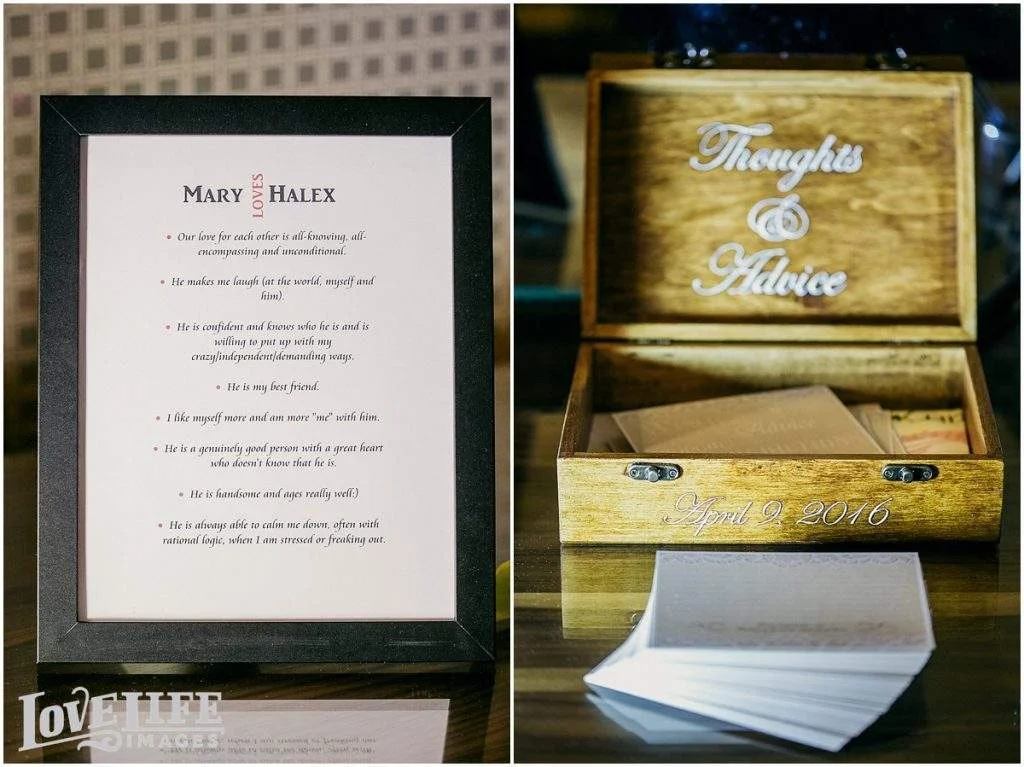 MARY LOVES HALEX
• Our love for each other is all-knowing, all-
encompassing and unconditional.
• He makes me laugh (at the world, myself and
him).
• He is confident and knows who he is and is
willing to put up with my
crazy/independent/demanding ways.
• He is my best friend.
• I like myself more and am more "me" with him.
• He is a genuinely good person with a great heart
who doesn't know that he is.
• He is handsome and ages really well:)
• He is always able to calm me down, often with
rational logic, when I am stressed or freaking out.
LOVE LIFE
IMAGES
Thoughts
&
Advice
April 9, 2016